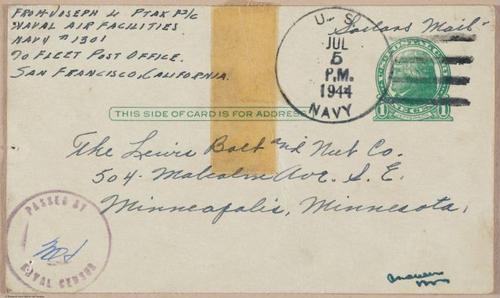 FROM JOSEPH W PTAK P2/C
NAVAL AIR FACILITIES
NAVY # 1301
℅ FLEET POST OFFICE.
SAN FRANCISCO, CALIFORNIA.
U. S.
JUL
5
P.M.
1944
NAVY
Sailors Mail
THIS SIDE OF CARD IS FOR ADDRESS
The Lewis Bolt and Nut Co.
504 - Malcolm Ave. S. E.
Minneapolis, Minnesota.
PASSED BY
NAVAL CENSOR